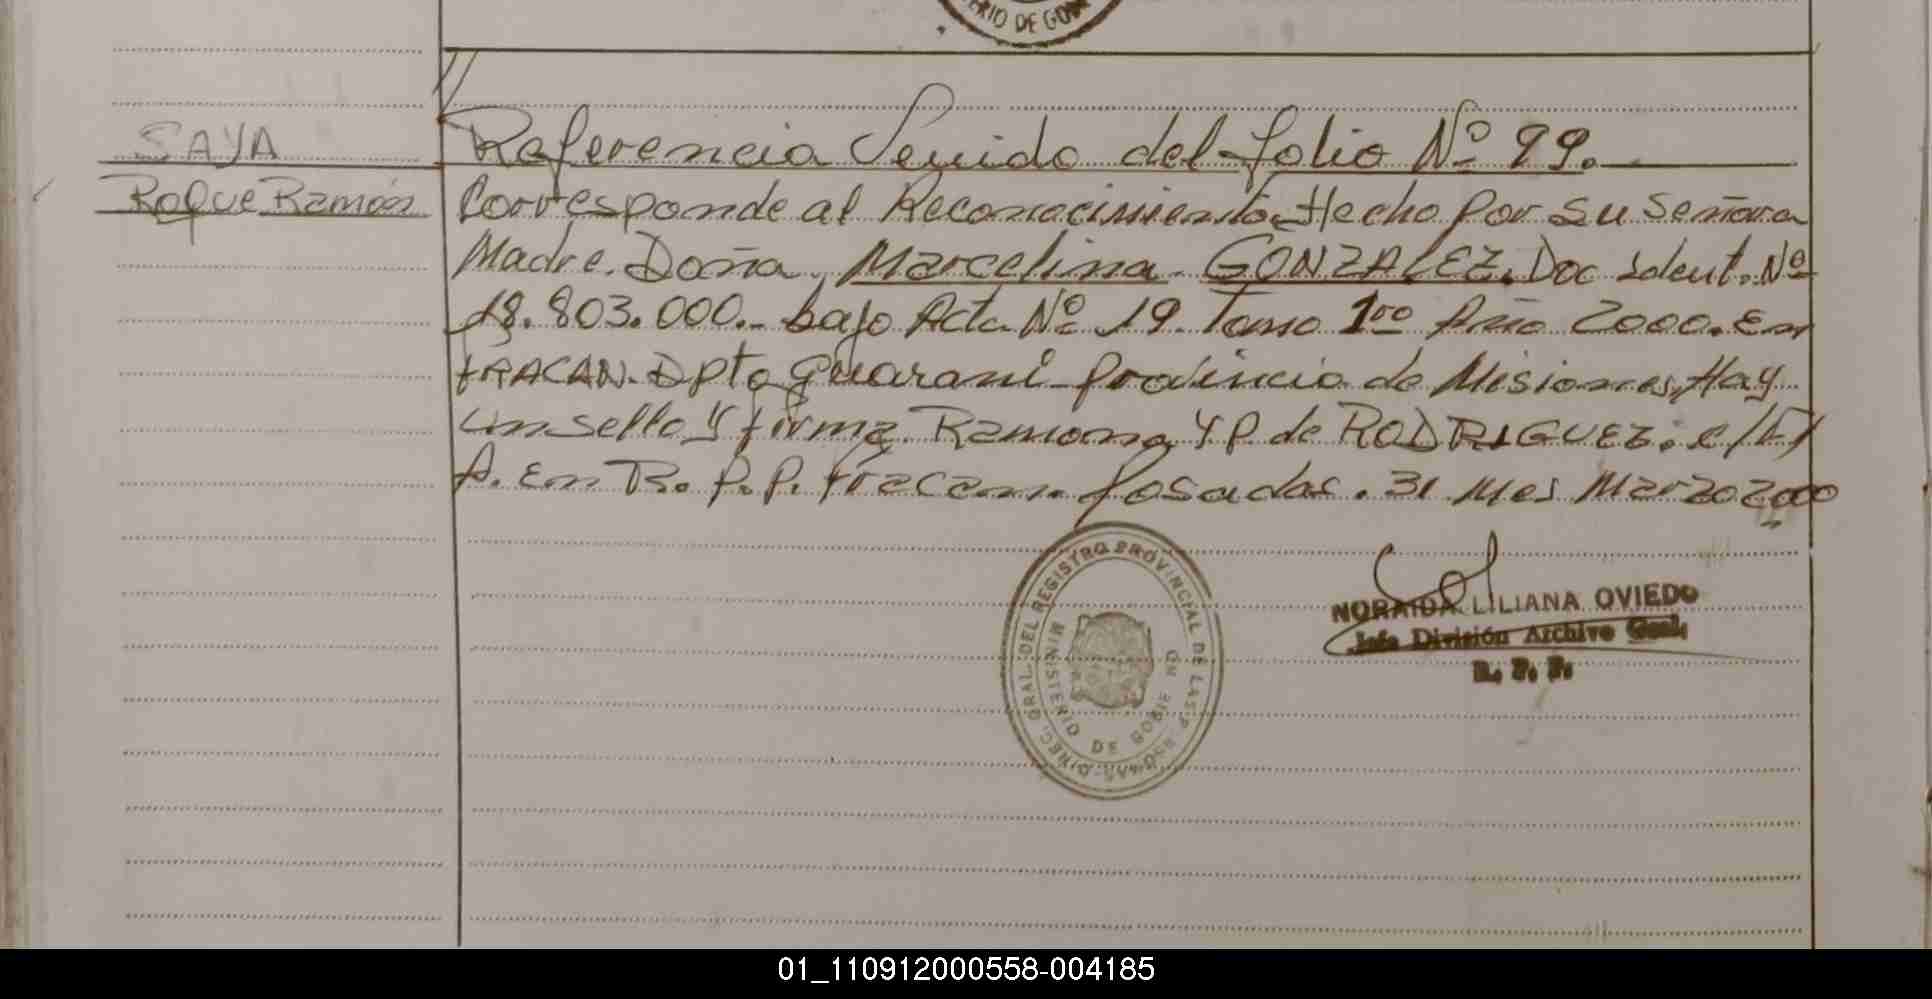 ERIO DE GOB
SAYA
Roque Ramón
Referencia Venido del folio Nº 99.
Corresponde al Reconocimiento Hecho Por su Señora
Madre. Doña, Marcelina GONZALEZ. Doc Ident. Nº
18.803.000.- bajo Acta Nº 19. Tomo 1ro Año 2000. En
tRACAN. Dpto Guarani Provincia de Misiones, Hay
un sello Y firma. Ramona Y P. de RODRIGUEZ. e/
A. En R. P. P. trácan. Posadas. 31 Mes Marzo 2000
DIREC. GRAL. DEL REGISTRO PROVINCIAL DE LAS P
MINISTERIO DE GOBIE
NORAIDA LILIANA OVIEDO
Jefe División Archivo Gral.
R. P. P.
01_110912000558-004185